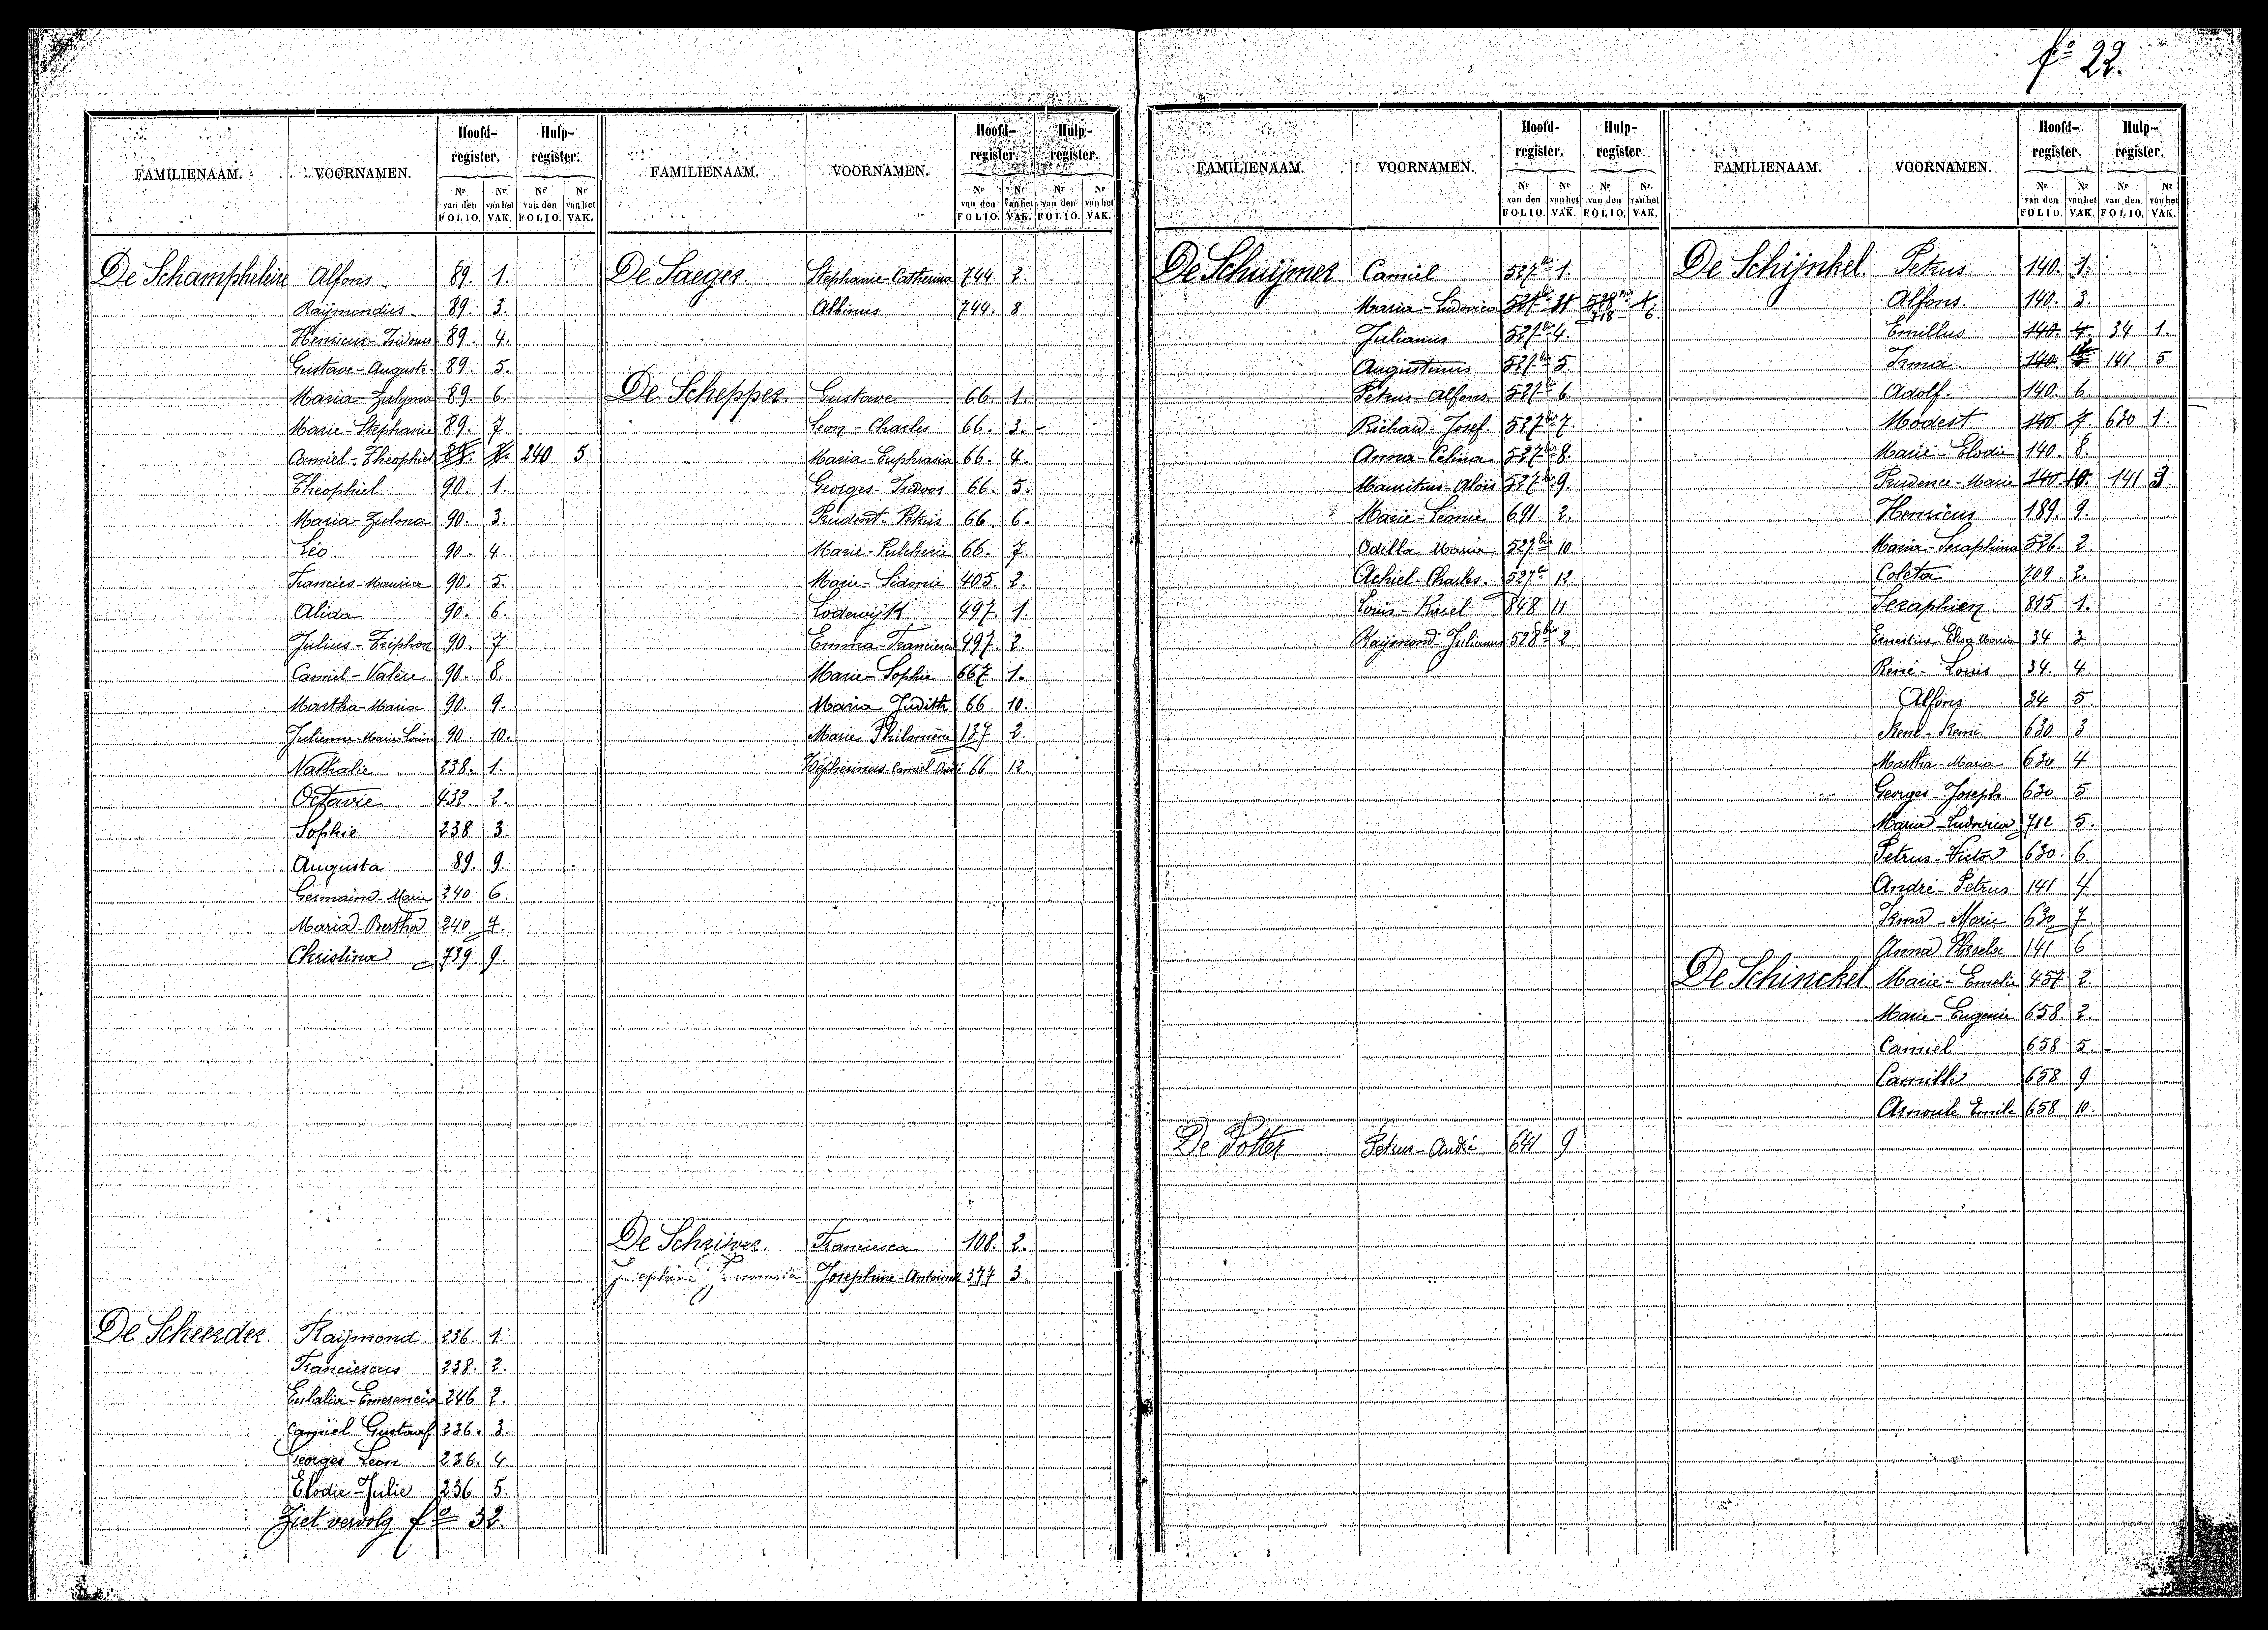 fo 22.
FAMILIENAAM. VOORNAMEN. Hoofd-register. Hulp-register.
Nr van den FOLIO. Nr van het VAK. Nr van den FOLIO. Nr van het VAK.
De Schampheleire Alfons 89. 1.
Raÿmondus 89. 3.
Henricus-Isidorus 89. 4.
Gustave-Auguste 89. 5.
Maria-Zulyma 89. 6.
Marie-Stephanie 89. 7.
Camiel-Theophiel 240 5
Theophiel 90. 1.
Maria-Zulma 90. 3.
Léo 90. 4.
Francies-Maurice 90. 5.
Alida 90. 6.
Julius-Triphon 90. 7.
Camiel-Valère 90. 8.
Martha-Maria 90. 9.
Julienne-Marie-Louise 90. 10.
Nathalie 238. 1.
Octavie 432. 2.
Sophie 238. 3.
Augusta 89. 9.
Germaine-Marie 240 6.
Maria-Bertha 240 7.
Christina 739 9.
De Scheerder. Raÿmond. 236. 1.
Franciescus 238. 2.
Eulalia-Emerencia 246 2.
Camiel Gustaaf 236. 3.
Georges Leon 236. 4.
Elodie-Julie 236 5.
Ziet vervolg fo 32.
FAMILIENAAM. VOORNAMEN. Hoofd-register. Hulp-register.
Nr van den FOLIO. Nr van het VAK. Nr van den FOLIO. Nr van het VAK.
De Saeger. Stephanie-Catherina 744. 2.
Albinus 744. 8
De Schepper. Gustave 66. 1.
Leon-Charles 66. 3.
Maria-Euphrasia 66. 4.
Georges-Isidoor 66. 5.
Prudent-Petrus 66. 6.
Marie-Pulcherie 66. 7.
Marie-Sidonie 405. 2.
Lodewijk 497. 1.
Emma-Franciesca 497. 2.
Marie-Sophie 667. 1.
Maria Judith 66 10.
Marie Philomène 137 2.
Zépherinus-Camiel-André 66 12.
De Schriver. Franciesca 108. 2.
Josephine-Antoinet 377 3.
FAMILIENAAM. VOORNAMEN. Hoofd-register. Hulp-register.
Nr van den FOLIO. Nr van het VAK. Nr van den FOLIO. Nr van het VAK.
De Schuijmer Camiel 527bis 1.
Maria-Ludovica 718 6.
Julianus 527bis 4.
Augustinus 527bis 5.
Petrus-Alfons 527bis 6.
Richard-Josef. 527bis 7.
Anna-Celina 527bis 8.
Mauritius-Aloïs 527bis 9.
Marie-Leonie 691 2.
Odilla Maria 527bis 10.
Achiel-Charles. 527bis 12.
Louis-Karel 848 11
Raÿmond-Julianus 528bis 2
De Potter Petrus-André 641 9
FAMILIENAAM. VOORNAMEN. Hoofd-register. Hulp-register.
Nr van den FOLIO. Nr van het VAK. Nr van den FOLIO. Nr van het VAK.
De Schijnkel. Petrus 140. 1.
Alfons. 140. 3.
Emillus 140. 4. 34 1.
Irma. 140. 141 5
Adolf. 140. 6.
Modest 140. 7. 630 1.
Marie-Elodie 140. 8.
Prudence-Marie 140. 10. 141 3.
Henricus 189. 9.
Maria-Seraphina 526. 2.
Coleta 709. 2.
Seraphien 815 1.
Ernestine Elisa Maria 34 3
René-Louis 34. 4.
Alfons 34 5
René-Remi 630 3
Martha-Maria 630 4
Georges-Joseph 630 5
Maria-Ludovica 712 5.
Petrus-Victor 630. 6.
André-Petrus 141 4
Irma-Marie 630 7.
Anna 141 6
De Schinckel Marie-Emelie 457 2.
Marie-Eugenie 658. 2.
Camiel 658 5.
Camilla 658 9
Arnoule Emile 658 10.